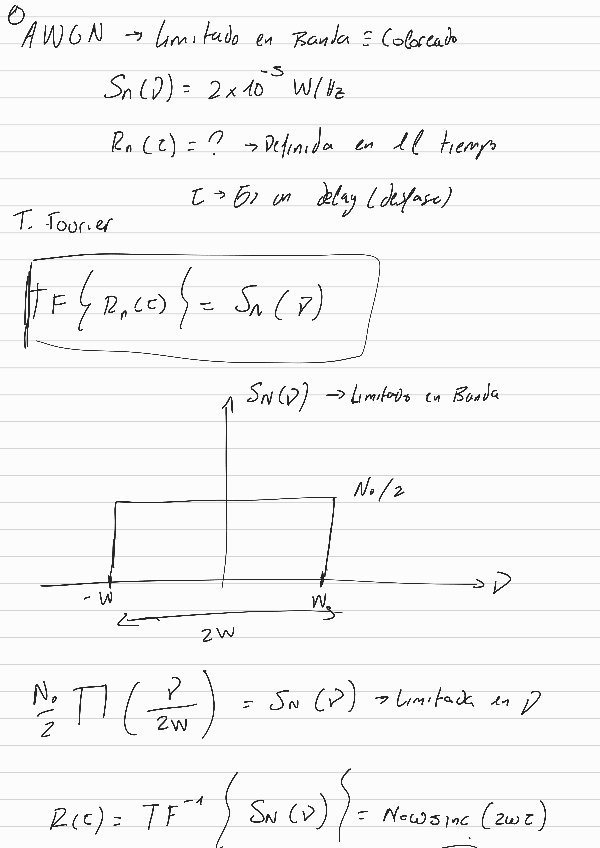 ①
AWGN → Limitado en Banda ≡ Coloreado
Sn(ν) = 2×10⁻⁵ W/Hz
Rn(τ) = ? → Definida en el tiempo
τ → Es un delay (desfase)
T. Fourier
TF { Rn(τ) } = SN(ν)
SN(ν) → Limitado en Banda
N₀/2
ν
-W W
2W
N₀/2 Π (ν/2W) = SN(ν) → Limitada en ν
R(τ) = TF⁻¹ { SN(ν) } = N₀W sinc (2Wτ)